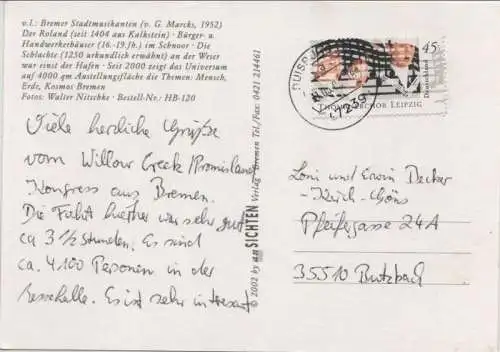 v.l.: Bremer Stadtmusikanten (v. G. Marcks, 1952)
Der Roland (seit 1404 aus Kalkstein) · Bürger- und
Handwerkerhäuser (16.-19.Jh.) im Schnoor · Die
Schlachte (1250 urkundlich erwähnt) an der Weser
war einst der Hafen · Seit 2000 zeigt das Universum
auf 4000 qm Austellungsfläche die Themen: Mensch,
Erde, Kosmos Bremen
Fotos: Walter Nitschke · Bestell-Nr.: HB-120
Viele herzliche Grüße
vom Willow Creek Promisland
Kongress aus Bremen.
Die Fahrt hierher war sehr gut
ca 3 1/2 Stunden. Es sind
ca. 4100 Personen in der
Messehalle. Es ist sehr interessant
2002 by an SICHTEN Verlag · Bremen Tel./Fax: 0421 214461
45
Deutschland
Thomanerchor Leipzig
47239
Loni und Erwin
Pfeifergasse 24A
35510 Butzbach